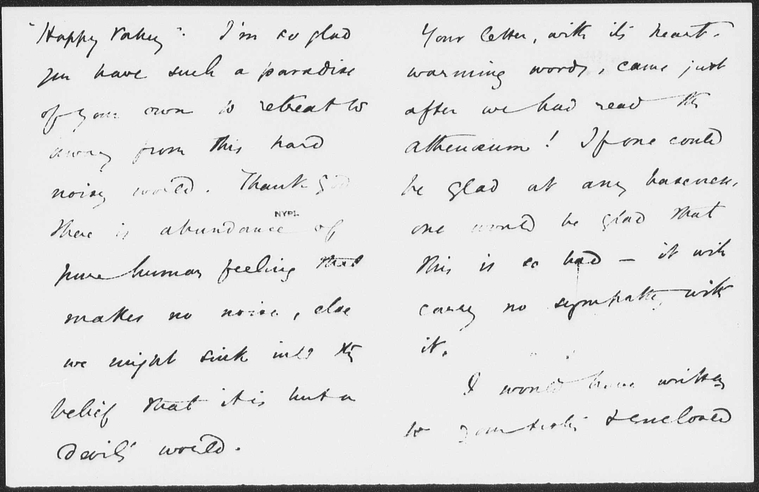 "Happy Valley". I'm so glad
you have such a paradise
of your own to retreat to
away from this hard
noisy world. Thank God
there is abundance of
NYPL
pure human feeling that
makes no noise, else
we might sink into the
belief that it is but a
devil's world.
Your letter, with its heart-
warming words, came just
after we had read the
Athenaeum! If one could
be glad at any baseness,
one would be glad that
this is so bad — it will
carry no sympathy with
it.
I would have written
to your & enclosed